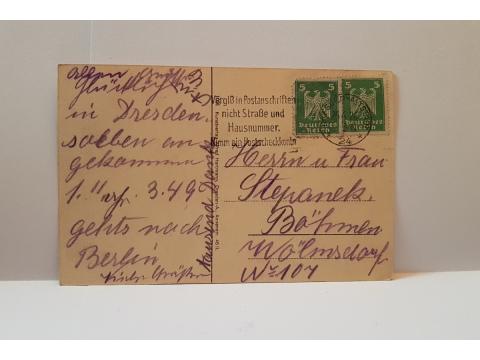 Glücklich
in Dresden
soeben an
gekommen
1. 11 3.49
gehts nach
Berlin
Viele Grüße
tausend Dank
Vergiß in Postanschriften
nicht Straße und
Hausnummer.
Nimm ein Postscheckkonto
5 5
Deutsches
Reich
5 5
Deutsches
Reich
Herrn u Frau
Stepanek.
Böhmen
Wölmsdorf
No 107